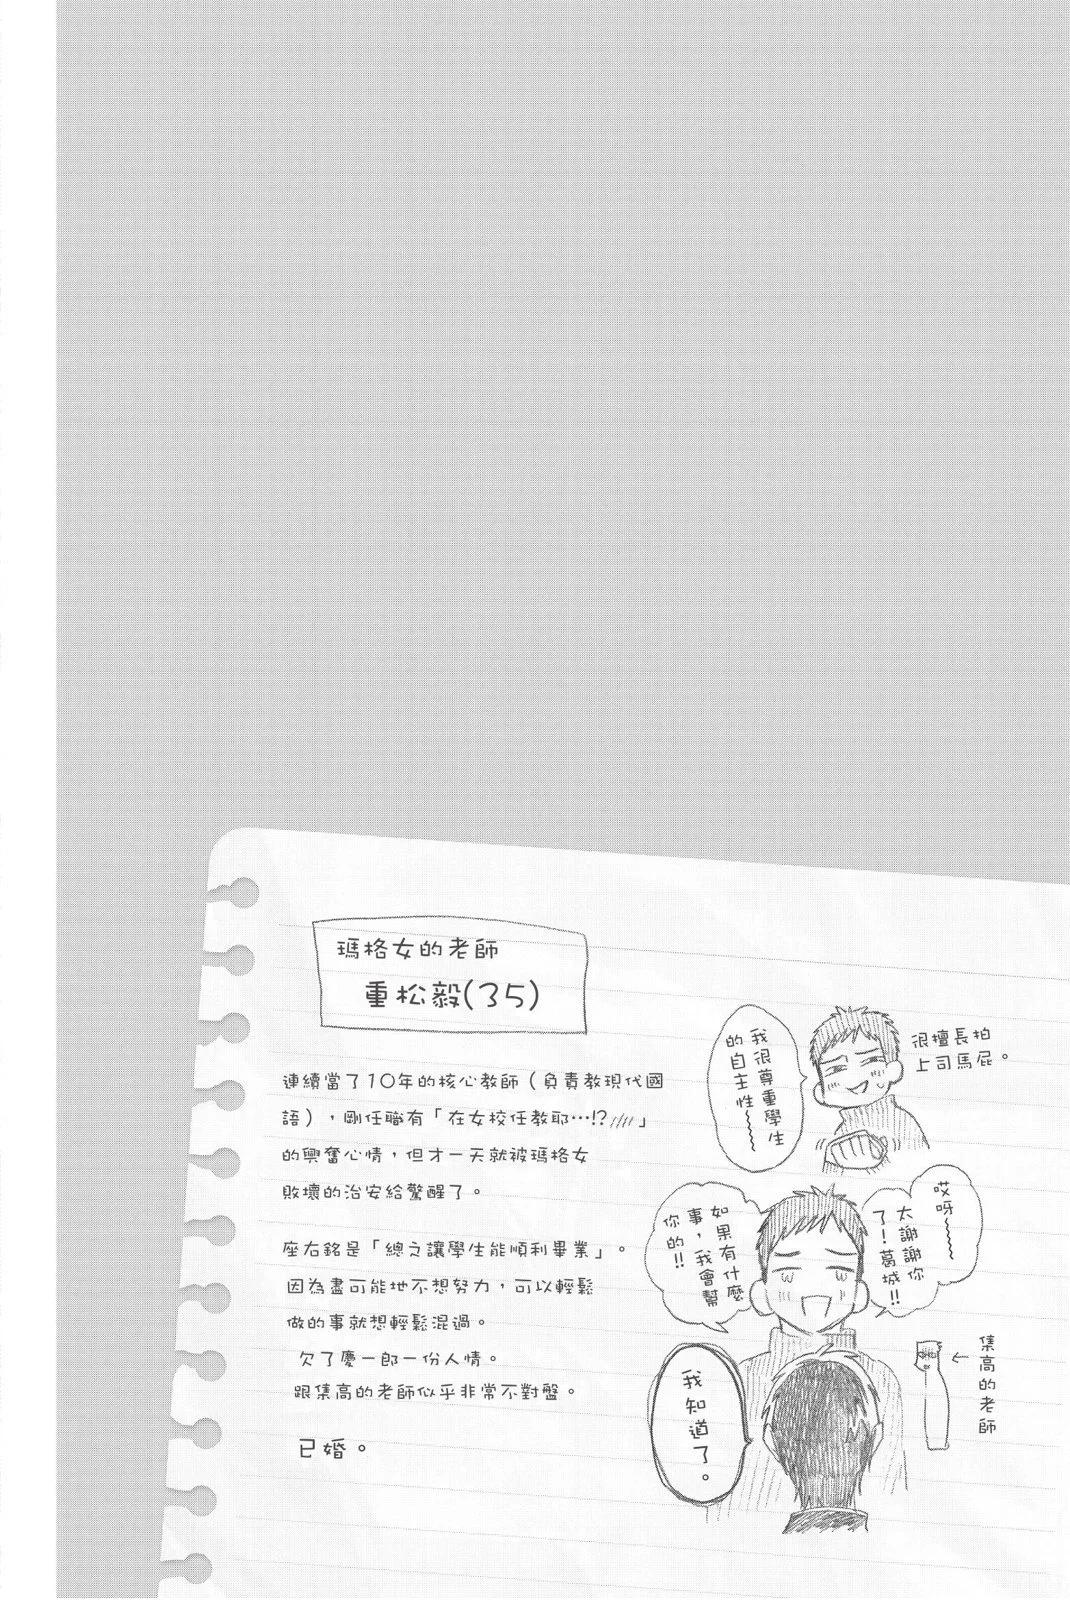 瑪格女的老師
重松毅(35)
連續當了10年的核心教師（負責教現代國
語），剛任職有「在女校任教耶…!?////」
的興奮心情，但才一天就被瑪格女
敗壞的治安給驚醒了。
座右銘是「總之讓學生能順利畢業」。
因為盡可能地不想努力，可以輕鬆
做的事就想輕鬆混過。
欠了慶一郎一份人情。
跟集高的老師似乎非常不對盤。
已婚。
很擅長拍
上司馬屁。
我很尊重學生
的自主性~~~~
哎呀~~~~
太謝謝你
了！葛城!!
如果有什麼
事，我會幫
你的!!
我知道了。
集高的老師